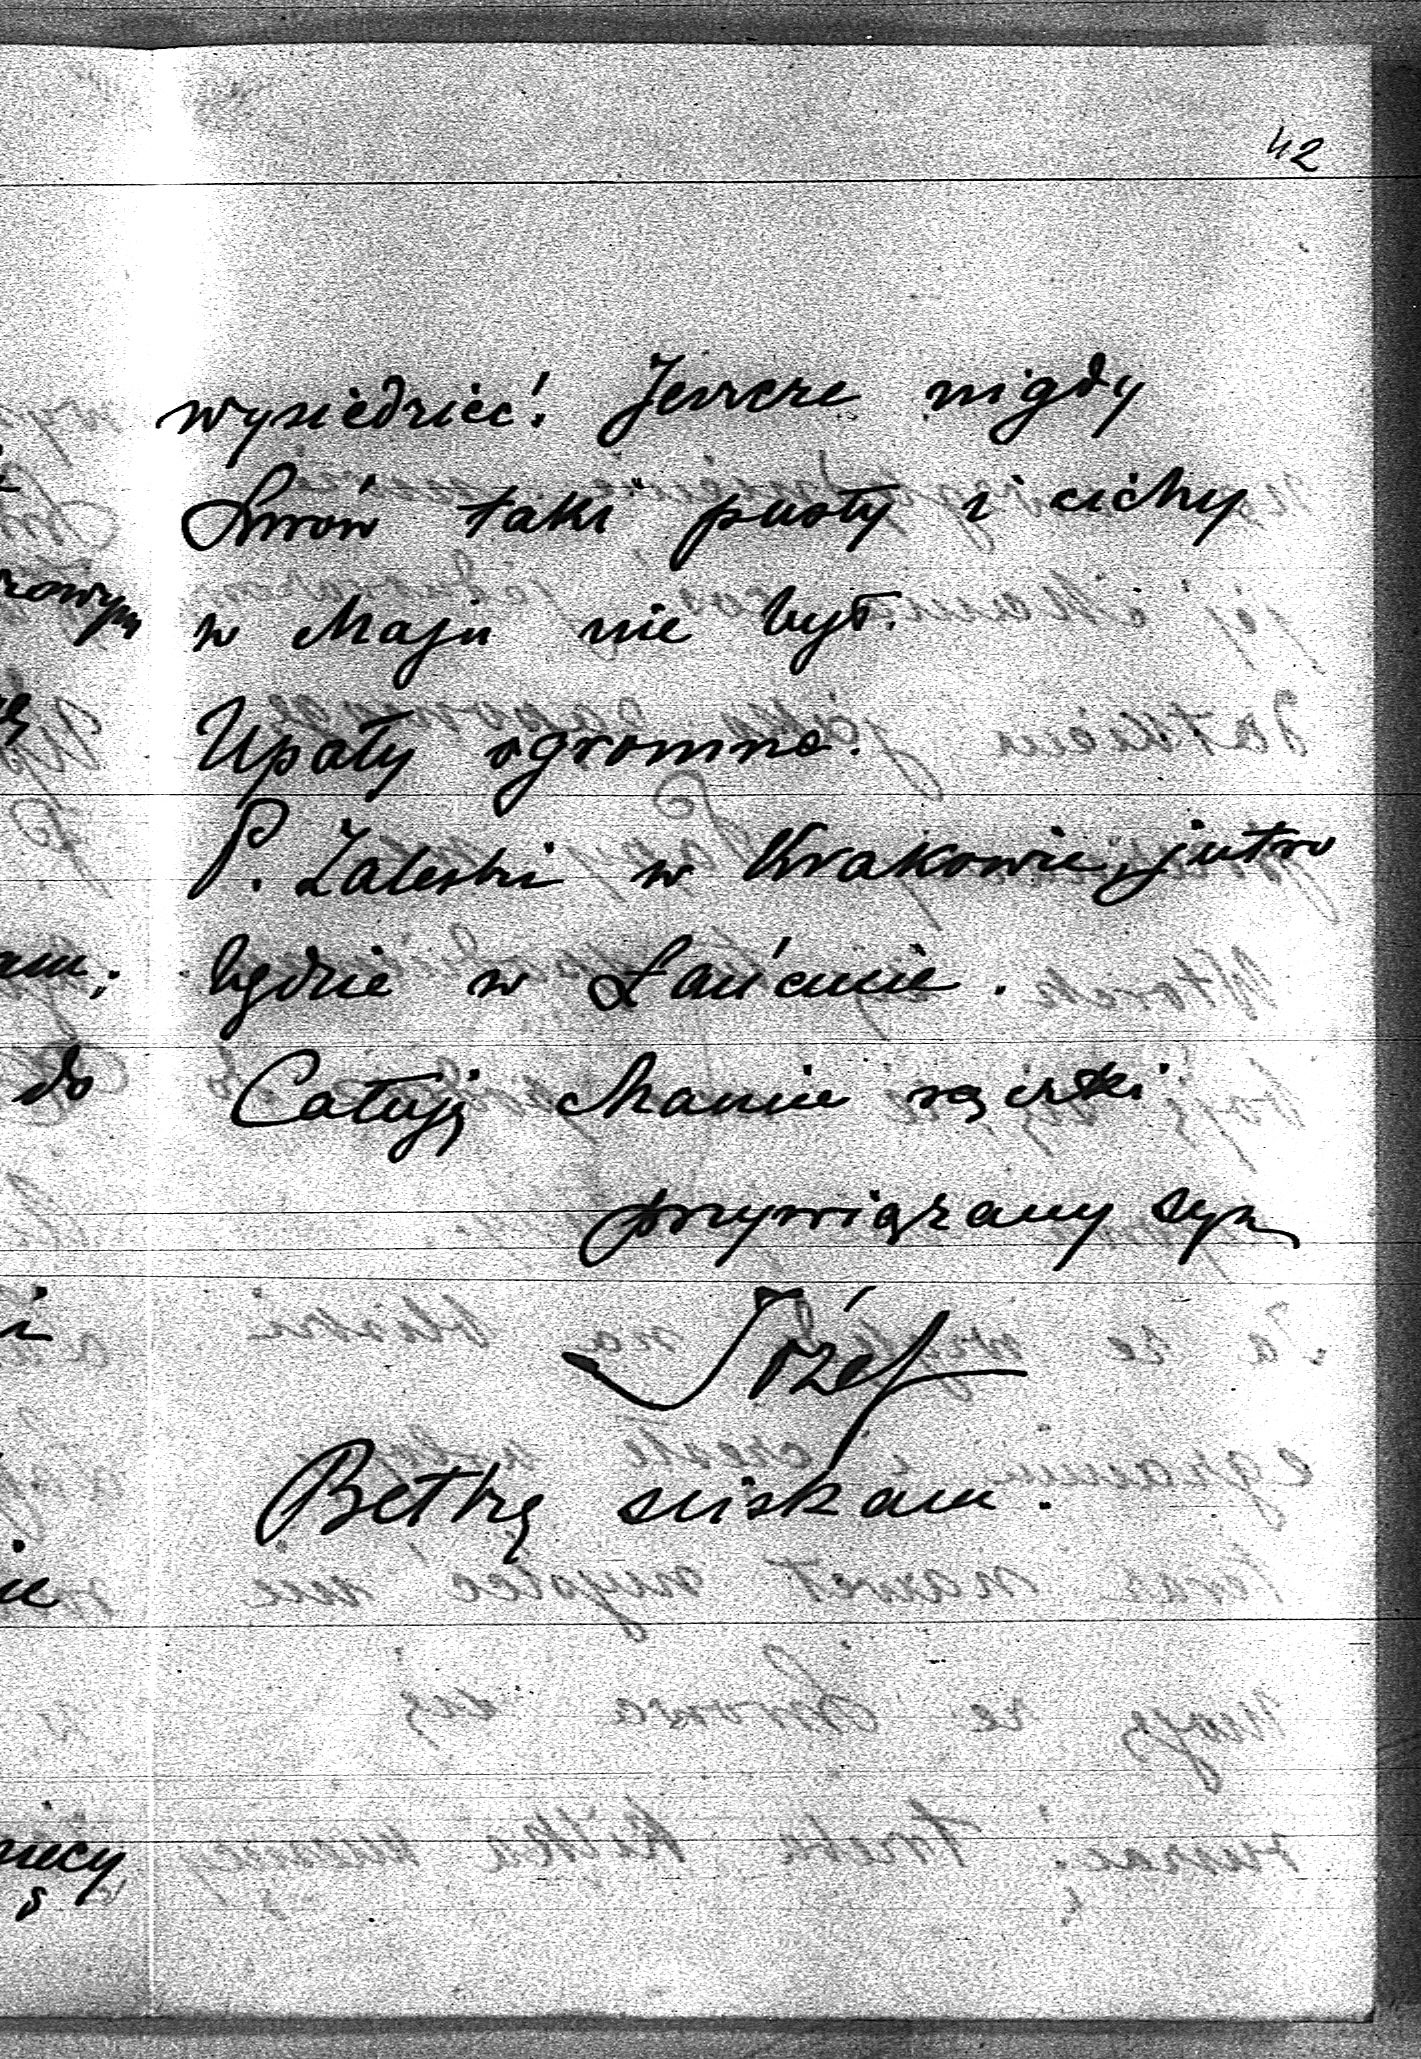 42
wysiedzieć! Jeszcze nigdy
Lwów taki pusty i cichy
w Maju nie był.
Upały ogromne.
P. Zaleski w Krakowie, jutro
będzie w Łańcucie.
Całuję Mamie rączki
przywiązany syn
Józef
Betkę sciskam.